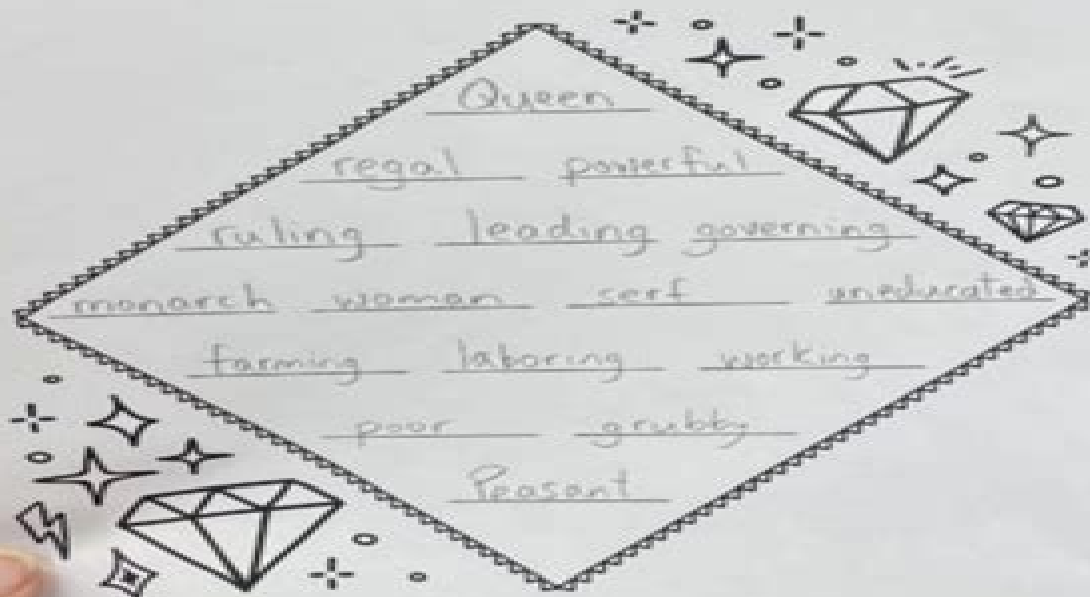 Queen
regal powerful
ruling leading governing
monarch woman serf uneducated
farming laboring working
poor grubby
Peasant